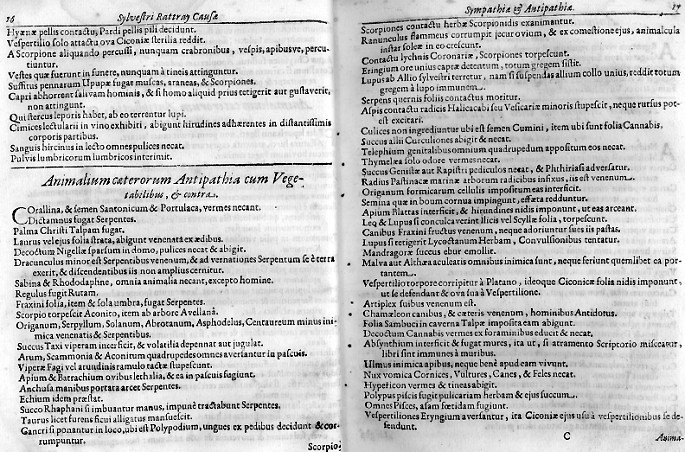 16 Sylvestri Rattray Causæ
Hyænæ pellis contactu, Pardi pellis pili decidunt.
Vespertilio solo attactu ova Ciconiæ sterilia reddit.
A Scorpione aliquando percussi, nunquam crabronibus, vespis, apibusve, percu-
tiuntur.
Vestes quæ fuerunt in funere, nunquam à tineis attinguntur.
Suffitus pennarum Upupæ fugat muscas, araneas, & Scorpiones.
Capri abhorrent salivam hominis, & si homo aliquid prius tetigerit aut gustaverit,
non attingunt.
Qui stercus leporis habet, ab eo terrentur lupi.
Cimices lectularii in vino exhibiti, abigunt hirudines adhærentes in distantissimis
corporis partibus.
Sanguis hircinus in lecto omnes pulices necat.
Pulvis lumbricorum lumbricos interimit.
Animalium cæterorum Antipathia cum Vege-
tabilibus, & contra.
Corallina, & semen Santonicum & Portulaca, vermes necant.
Dictamnus fugat Serpentes.
Palma Christi Talpam fugat.
Laurus velejus folia strata, abigunt venenata ex ædibus.
Decoctum Nigellæ sparsum in domo, pulices necat & abigit.
Dracunculus minor est Serpentibus venenum, & ad vernationes Serpentum se è terra
exerit, & discendentibus iis non amplius cernitur.
Sabina & Rhododaphne, omnia animalia necant, excepto homine.
Regulus fugit Rutam.
Fraxini folia, item & sola umbra, fugat Serpentes.
Scorpio torpescit Aconito, item ab arbore Avellanâ.
Origanum, Serpyllum, Solanum, Abrotanum, Asphodelus, Centaureum minus ini-
mica venenatis & Serpentibus.
Succus Taxi viperam interficit, & volatilia depennat aut jugulat.
Arum, Scammonia & Aconitum quadrupedes omnes aversantur in pascuis.
Viperæ Fagi vel arundinis ramulo tactæ stupescunt.
Apium & Batrachium ovibus lethalia, & ea in pascuis fugiunt.
Anchusa manibus portata arcet Serpentes.
Echium idem præstat.
Succo Rhaphani si imbuantur manus, impunè tractabunt Serpentes.
Taurus licet furens ficui alligatus mansuescit.
Cancri si ponantur in loco, ubi est Polypodium, ungues ex pedibus decidunt & cor-
rumpuntur.
Scorpio-
Sympathiæ & Antipathiæ. 17
Scorpiones contactu herbæ Scorpionidis exanimantur.
Ranunculus flammeus corrumpit jecur ovium, & ex comestione ejus, animalcula
instar soleæ in eo crescunt.
Contactu lychnis Coronariæ, Scorpiones torpescunt.
Eringium ore unius capræ detentum, totum gregem sistit.
Lupus ab Allio sylvestri terretur, nam si suspendas allium collo unius, reddit totum
gregem à lupo immunem.
Serpens quernis foliis contactus moritur.
Aspis contactu radicis Halicacabi seu Vesicariæ minoris stupescit, neque rursus pot-
est excitari.
Culices non ingrediuntur ubi est semen Cumini, item ubi sunt folia Cannabis.
Succus alii Curculiones abigit & necat.
Telephium genitalibus omnium quadrupedum appositum eos necat.
Thymelæa solo odore vermes necat.
Succus Genistæ aut Rapistri pediculos necat, & Phthiriasi adversatur.
Radius Pastinacæ marinæ arborum radicibus infixus, iis est venenum.
Origanum formicarum cellulis impositum eas interficit.
Semina quæ in boum cornua impingunt, effœta redduntur.
Apium Blattas interficit, & hirundines nidis imponunt, ut eas arceant.
Leo & Lupus si conculcaverint Ilicis vel Scyllæ folia, torpescunt.
Canibus Fraxini fructus venenum, neque adoriuntur sues iis pastas.
Lupus si tetigerit Lycoctanum Herbam, Convulsionibus tentatur.
Mandragoræ succus ebur emollit.
Malva aut Althæa aculeatis omnibus inimica sunt, neque feriunt quemlibet ea por-
tantem.
Vespertilio torpore corripitur à Platano, ideoque Ciconiæ folia nidis imponunt,
ut se defendant & ova sua à Vespertilione.
Artiplex suibus venenum est.
Chamæleon canibus, & cæteris venenum, hominibus Antidotus.
Folia Sambuci in caverna Talpæ imposita eam abigunt.
Decoctum Cannabis vermes ex foraminibus educit & necat.
Absynthium interficit & fugat mures, ita ut, si atramento Scriptorio misceatur,
libri sint immunes à muribus.
Ulmus inimica apibus, neque benè apud eam vivunt.
Nux vomica Cornices, Vultures, Canes, & Feles necat.
Hypericon vermes & tineas abigit.
Polypus piscis fugit pulicariam herbam & ejus succum.
Omnes Pisces, asam fœtidam fugiunt.
Vespertiliones Eryngium aversantur, ita Ciconiæ ejus usu à vespertilionibus se de-
fendunt.
C Anima-